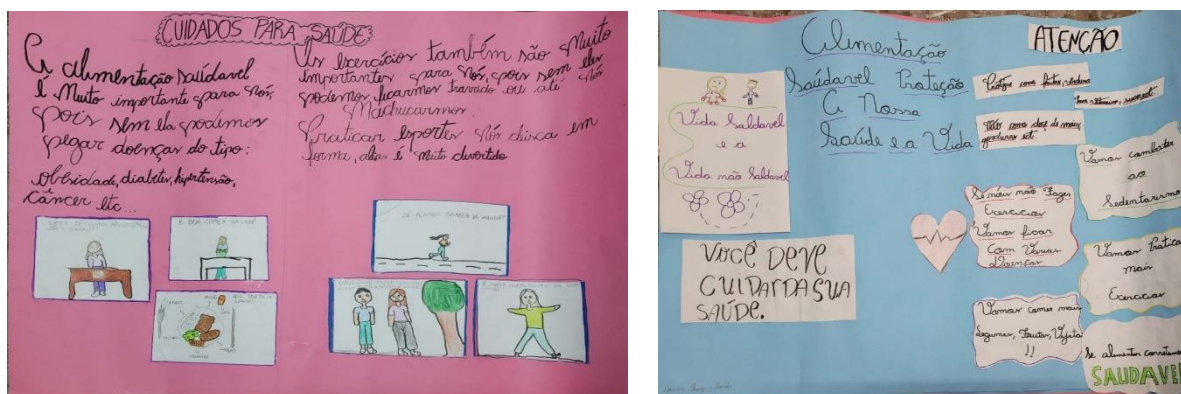 CUIDADOS PARA SAÚDE
A alimentação saúdavel
é Muito importante para Nós,
pois sem ela podemos
pegar doenças do tipo:
obesidade, diabetes, hipertensão,
câncer etc...
Us Exercícios também são Muito
importantes para Nós, pois sem eles
podemos ficarmos travado ou até Nós
Machucarmos.
Praticar Esportes Nós deixa em
forma, alas é Muito divertido
É BOM COMER SALADA
Alimentação
Saúdavel Proteção
A Nossa
Saúde e a Vida
ATENÇÃO
Vida Saldavel
e a
Vida não Saldavel
VOCÊ DEVE
CUIDAR DA SUA
SAÚDE.
Se nóis não Fazer
Exercicios
Vamos ficar
Com Varias
Doenças
Vamos comer mais
Legumes, Frutas, Vejeta
!!
Vamos combater
ao
Sedentarismo
Vamos Pratica
mais
Exercicios
Se alimentar corretamen
SAUDAVEL